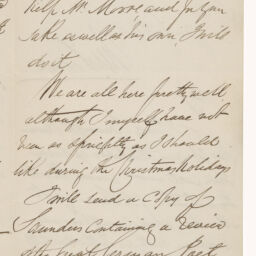 help Mr Moore and for your
sake as well as his own, I will
do it.
We are all here pretty well
although I myself have not
been as sprightly as I should
like during the Christmas holidays
I will send a copy of
Saunders containing a review
of the Great German Poet